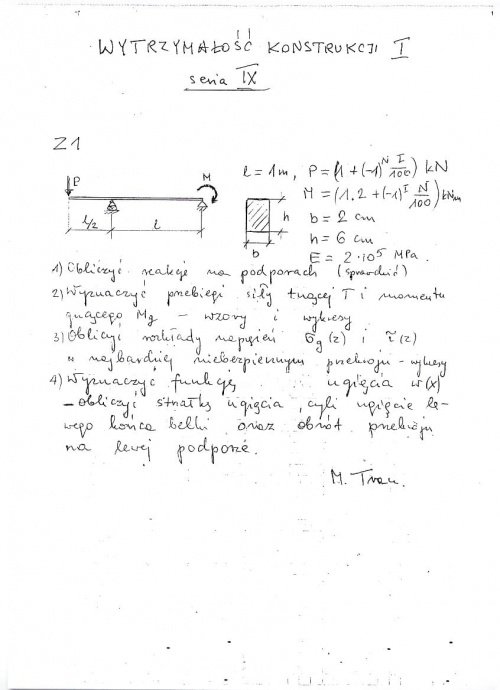 WYTRZYMAŁOŚĆ KONSTRUKCJI I
seria IX
Z1
P
M
l/2
l
h
b
l = 1m, P = (1 + (-1)^N I/100) kN
M = (1.2 + (-1)^I N/100) kNm
b = 2 cm
h = 6 cm
E = 2·10^5 MPa.
1) Obliczyć reakcje na podporach (sprawdzić)
2) Wyznaczyć przebiegi siły tnącej T i momentu
gnącego Mg – wzory i wykresy
3) Obliczyć rozkłady naprężeń σg(z) i τ(z)
w najbardziej niebezpiecznym przekroju - wykresy
4) Wyznaczyć funkcję ugięcia w(x)
– obliczyć strzałkę ugięcia, czyli ugięcie le-
wego końca belki oraz obrót przekroju
na lewej podporze.
M.